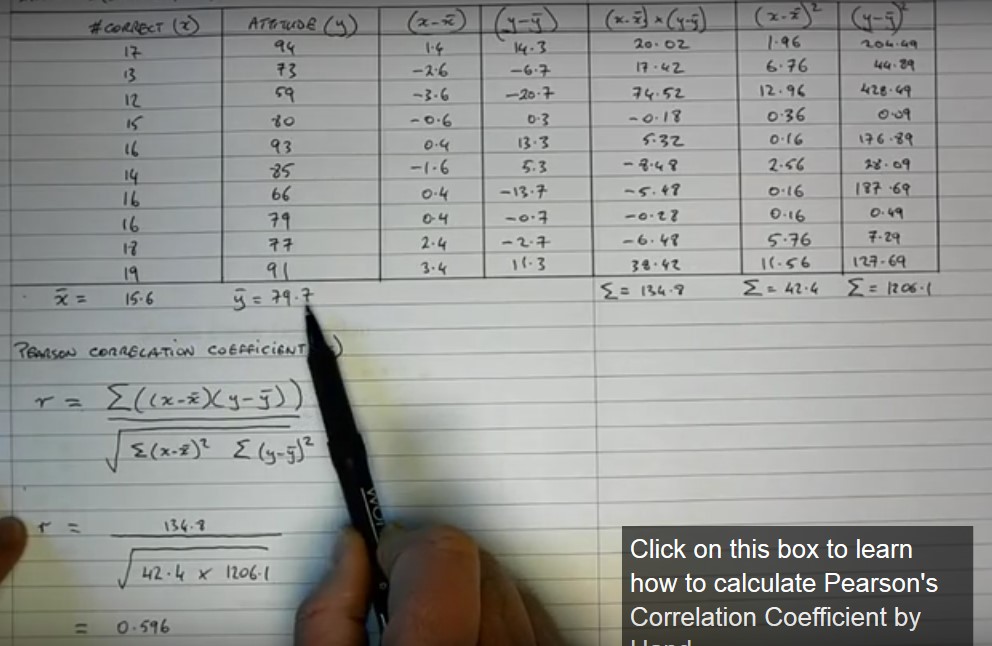 # CORRECT (x) ATTITUDE (y) (x-x̄) (y-ȳ) (x-x̄)×(y-ȳ) (x-x̄)² (y-ȳ)²
17 94 1.4 14.3 20.02 1.96 204.49
13 73 -2.6 -6.7 17.42 6.76 44.89
12 59 -3.6 -20.7 74.52 12.96 428.49
15 80 -0.6 0.3 -0.18 0.36 0.09
16 93 0.4 13.3 5.32 0.16 176.89
14 85 -1.6 5.3 -8.48 2.56 28.09
16 66 0.4 -13.7 -5.48 0.16 187.69
16 79 0.4 -0.7 -0.28 0.16 0.49
18 77 2.4 -2.7 -6.48 5.76 7.29
19 91 3.4 11.3 38.42 11.56 127.69
x̄ = 15.6 ȳ = 79.7 Σ = 134.8 Σ = 42.4 Σ = 1206.1
PEARSON CORRELATION COEFFICIENT
r = Σ((x-x̄)(y-ȳ))
√Σ(x-x̄)² Σ(y-ȳ)²
r = 134.8
√42.4 × 1206.1
= 0.596
Click on this box to learn
how to calculate Pearson's
Correlation Coefficient by
Hand